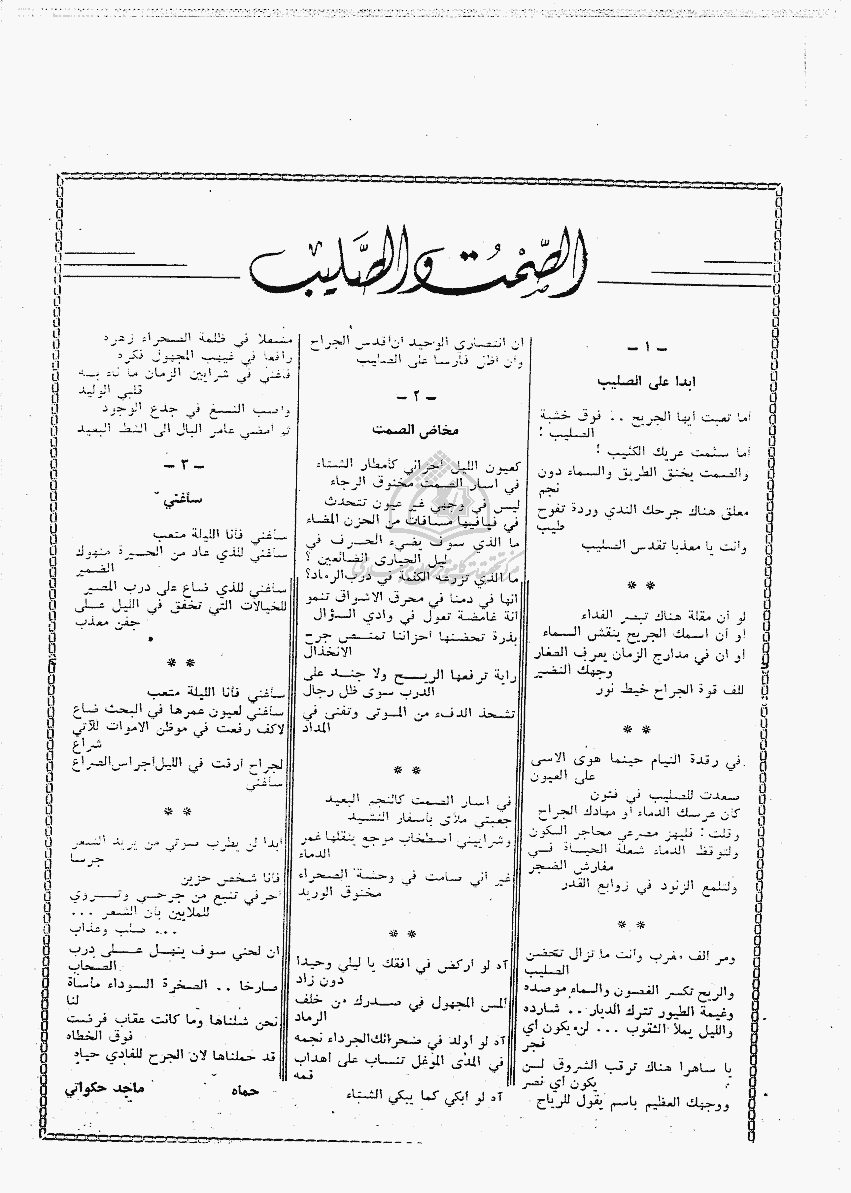 الصَّمْتُ وَالصَّليب
- ١ -
ابدا على الصليب
أما تعبت أيها الجريح .. فوق خشبة
الصليب !
أما سئمت عريك الكئيب !
والصمت يخنق الطريق والسماء دون
نجم
معلق هناك جرحك الندي وردة تفوح
طيب
وانت يا معذبا تقدس الصليب
* *
لو أن مقلة هناك تبصر الفداء
او أن اسمك الجريح ينقش السماء
او ان في مدارج الزمان يعرف الصغار
وجهك النضير
للف قوة الجراح خيط نور
* *
في رقدة النيام حينما هوى الاسى
على العيون
صعدت للصليب في فتون
كان عرسك الدماء أو مهادك الجراح
وقلت : فليهز مصرعي محاجر السكون
ولتوقظ الدماء شعلة الحياة في
مفارش الضجر
ولتلمع الزنود في زوابع القدر
* *
ومر الف مغرب وانت ما تزال تحضن
الصليب
والريح تكسر الغصون والسماء موصده
وغيمة الطيور تترك الديار .. شارده
والليل يملأ الثقوب ... لن يكون أي
فجر
يا ساهرا هناك ترقب الشروق لن
يكون أي نصر
ووجهك العظيم باسم يقول للرياح
ان انتصاري الوحيد ان اقدس الجراح
وان اظل فارسا على الصليب
- ٢ -
مخاض الصمت
كعيون الليل احزاني كأمطار الشتاء
في اسار الصمت مخنوق الرجاء
ليس في وجهي غير عيون تتحدث
في فيافيها مسافات من الحزن المضاء
ما الذي سوف يضيء الحرف في
ليل الحيارى الضائعين ؟
ما الذي تزرعه الكلمة في درب الرماد؟
انها في دمنا في محرق الاشواق تنمو
انة غامضة تعول في وادي السؤال
بذرة تحضنها احزاننا تمتص جرح
الانخذال
راية ترفعها الريح ولا جند على
الدرب سوى ظل رجال
تشحذ الدفء من الموتى وتفنى في
المداد
* *
في اسار الصمت كالنجم البعيد
جعبتي ملأى بأسفار النشيد
وشراييني اصطخاب موجع يثقلها غمر
الدماء
غير اني صامت في وحشة الصحراء
مخنوق الوريد
* *
آه لو اركض في افقك يا ليلي وحيدا
دون زاد
المس المجهول في صدرك من خلف
الرماد
آه لو اولد في صحرائك الجرداء نجمه
في المدى الموغل تنساب على اهداب
قمه
آه لو ابكي كما يبكي الشتاء
مشعلا في ظلمة الصحراء زهره
رافعا في غيهب المجهول فكره
فأغني في شرايين الزمان ما ناء به
قلبي الوليد
واصب النسغ في جذع الوجود
ثم امضي عامر البال الى الشط البعيد
- ٣ -
سأغني
سأغني فأنا الليلة متعب
سأغني للذي عاد من الحيرة منهوك
الضمير
سأغني للذي ضاع على درب المصير
للخيالات التي تخفق في الليل على
جفن معذب
* *
سأغني فأنا الليلة متعب
سأغني لعيون عمرها في البحث ضاع
لاكف رفعت في موطن الاموات للآتي
شراع
لجراح ارقت في الليل اجراس الصراع
سأغني
* *
ابدا لن يطرب صوتي من يريد الشعر
جرسا
فأنا شخص حزين
احرفي تنبع من جرحي وتروي
للملايين بأن الشعر ...
... صلب وعذاب
ان لحني سوف ينهل على درب
الصحاب
صارخا .. الصخرة السوداء مأساة
لنا
نحن شلناها وما كانت عقاب فرضت
فوق الخطاه
قد حملناها لان الجرح للفادي حياه
حماه
ماجد حكواتي